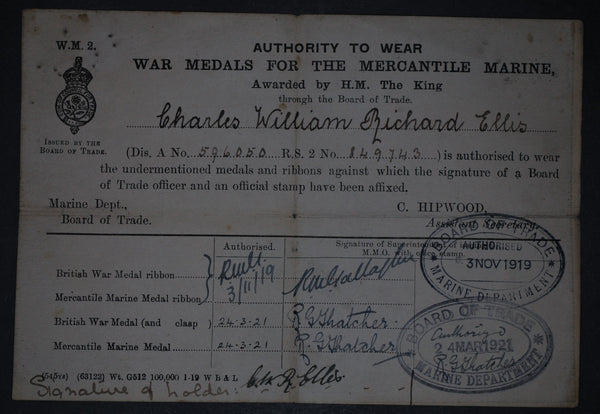 W.M. 2.
AUTHORITY TO WEAR
WAR MEDALS FOR THE MERCANTILE MARINE,
Awarded by H.M. The King
through the Board of Trade.
ISSUED BY THE
BOARD OF TRADE.
Charles William Richard Ellis
(Dis. A No. 596050 R.S. 2 No. 849743) is authorised to wear
the undermentioned medals and ribbons against which the signature of a Board
of Trade officer and an official stamp have been affixed.
Marine Dept., C. HIPWOOD,
Board of Trade. Assistant Secretary.
Authorised. Signature of Superintendent of
M.M.O. with office stamp.
British War Medal ribbon
Mercantile Marine Medal ribbon 3/11/19
British War Medal (and clasp) 24-3-21 R G Thatcher
Mercantile Marine Medal 24-3-21 R. G Thatcher
BOARD OF TRADE
AUTHORISED
3 NOV 1919
MARINE DEPARTMENT
BOARD OF TRADE
Authorised
24 MAR 1921
R G Thatcher
MARINE DEPARTMENT
(63122) Wt. G512 100,000 1-19 W B & L
Signature of holder: C. W. R. Ellis